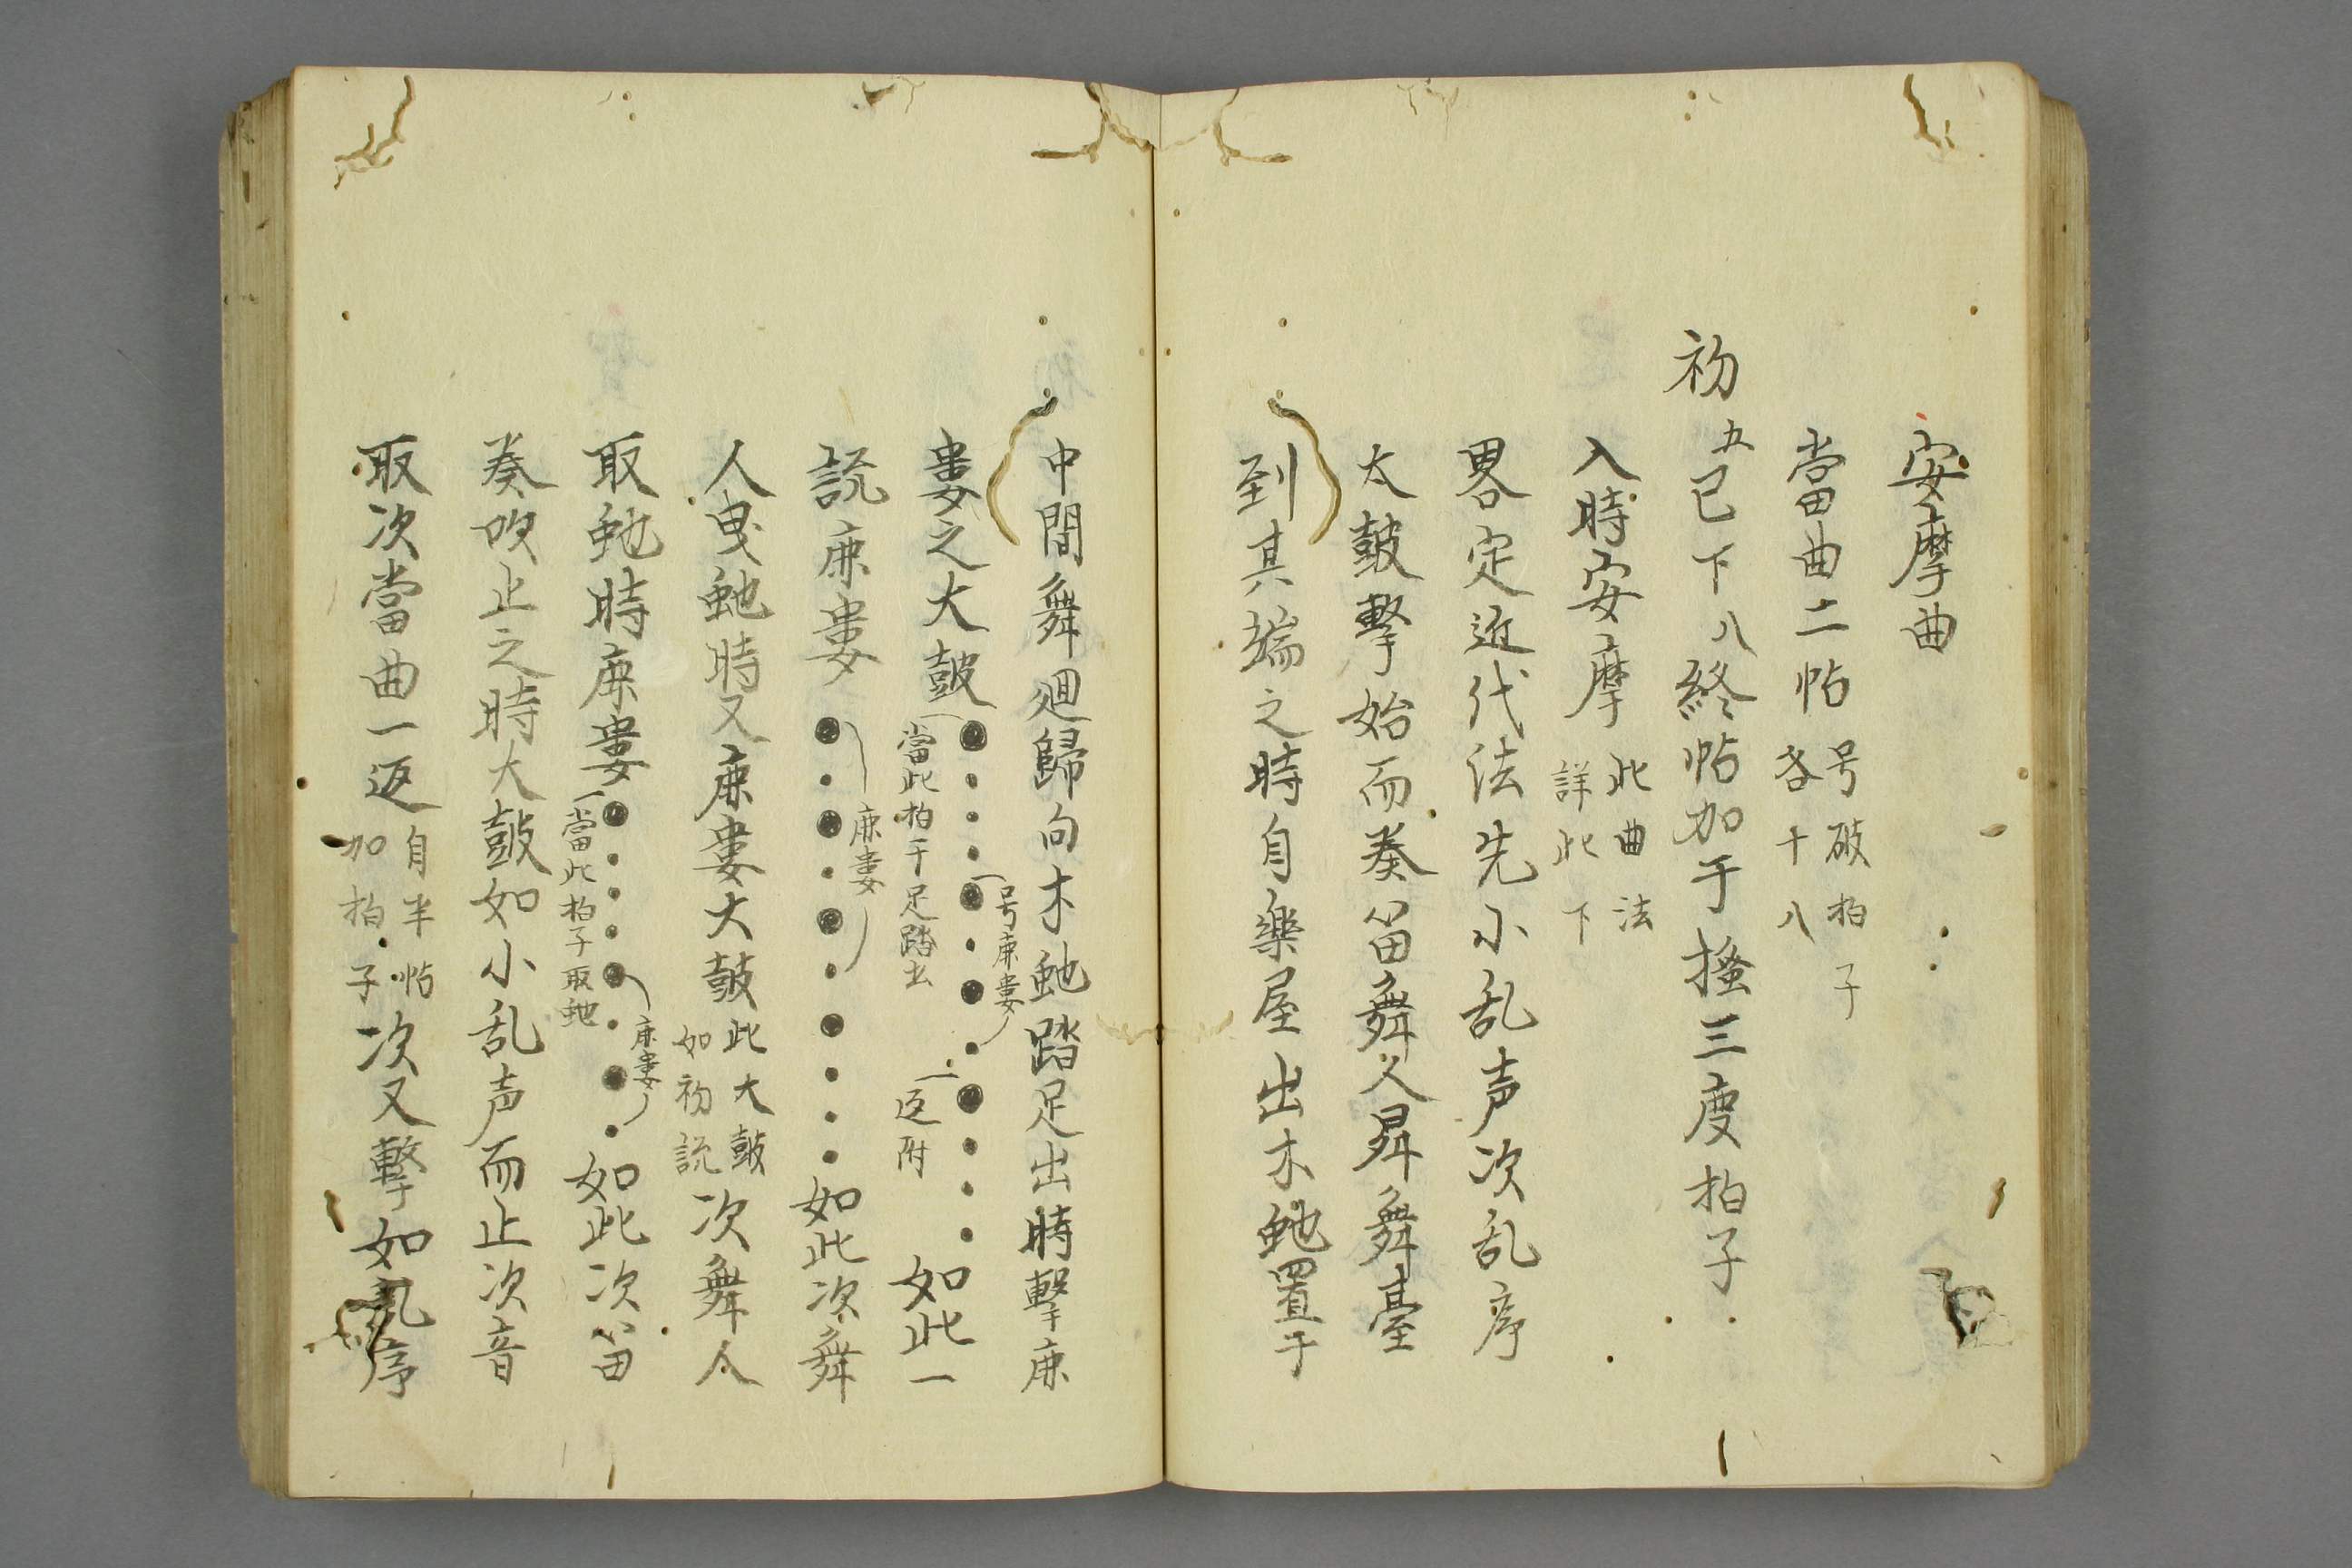 安摩曲
當曲二帖 号破拍子
各十八
初五已下八終帖加于搔三度拍子
入時安摩 此曲法
詳此下
畧定近代法先小乱声次乱序
太鼓擊始而奏笛舞人昇舞臺
到其端之時自樂屋出木虵置于
中間舞廻歸向木虵踏足出時擊鹿
婁之大鼓
号鹿婁
當此拍子足踏出
一返附
如此一
説鹿婁
鹿婁
如此次舞
人曳虵時又鹿婁大鼓 此大鼓
如初説 次舞人
取虵時鹿婁
鹿婁
當此拍子取虵
如此次笛
奏吹止之時大鼓如小乱声而止次音
取次當曲一返 自半帖
加拍子 次又擊如乱序